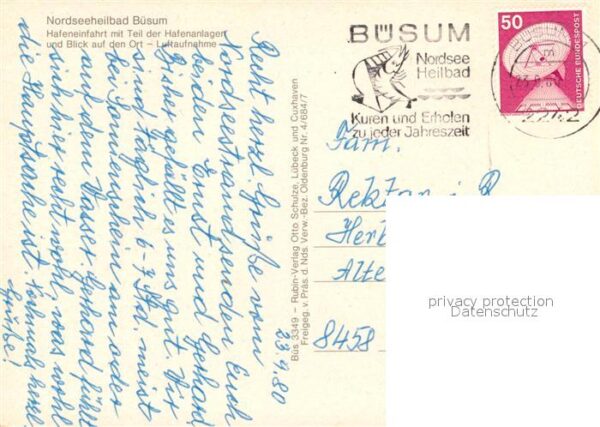 Nordseeheilbad Büsum
Hafeneinfahrt mit Teil der Hafenanlagen
und Blick auf den Ort – Luftaufnahme
23.4.80
Recht herzl. Grüße vom
Nordseestrand senden Euch
beiden Ernst und Gerhard
Bisher gefällt es uns gut. Wir
sind täglich 6-7 Std. meist
im Freien am oder
auf dem Wasser. Gerhard fühlt
sich hier recht wohl, was wohl
die Hauptsache ist. Nochmals herzl.
Grüße!
Büs 3349 – Rubin-Verlag Otto Schulze, Lübeck und Cuxhaven
Freigeg. v. Präs. d. Nds. Verw.-Bez. Oldenburg Nr. 4/684/7
BÜSUM
Nordsee
Heilbad
Kuren und Erholen
zu jeder Jahreszeit
50
DEUTSCHE BUNDESPOST
2242
Fam.
Rektor i. R
Herb
Alte
8458
privacy protection
Datenschutz